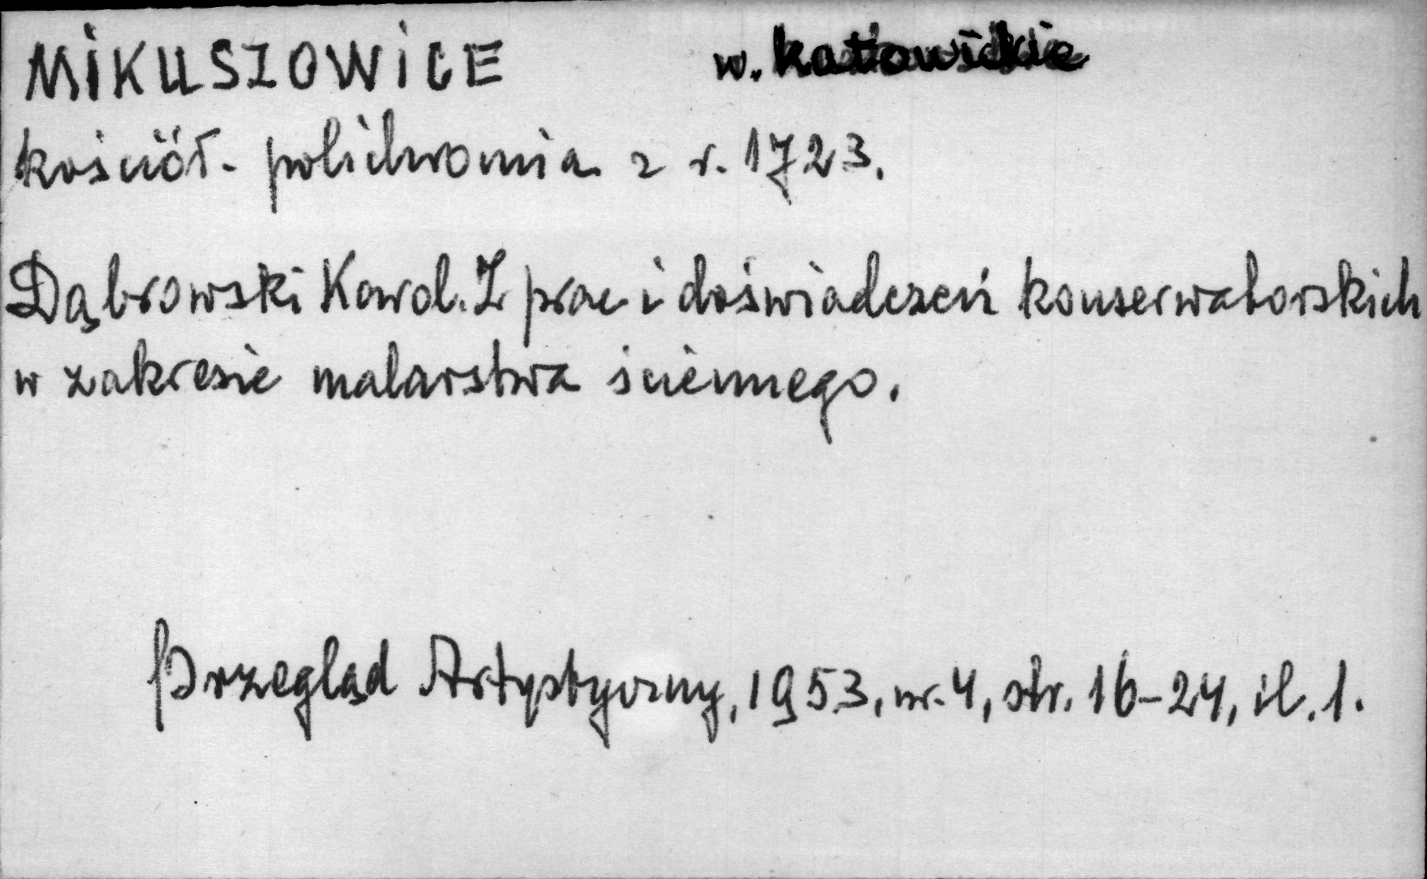 MIKUSZOWICE w. katowickie
kościół. polichromia z r. 1723.
Dąbrowski Karol. Z prac i doświadczeń konserwatorskich
w zakresie malarstwa ściennego.
Przegląd Artystyczny, 1953, nr. 4, str. 16-24, il. 1.